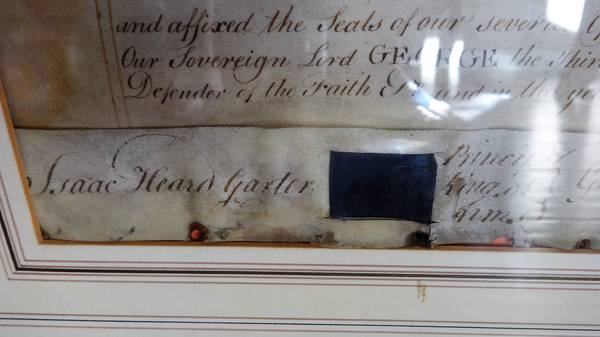 and affixed the Seals of our several
Our Sovereign Lord GEORGE the Thir
Defender of the Faith &c and in the yea
Isaac Heard Garter
Principal
King of
Arms